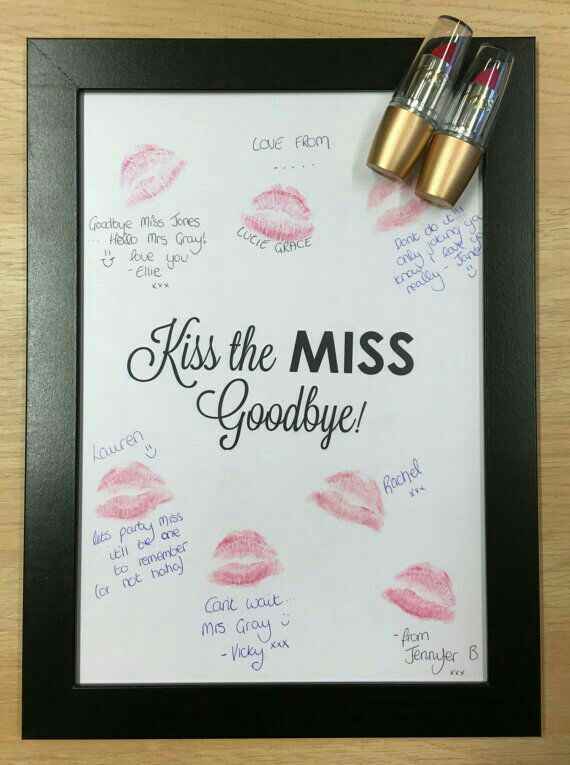 LOVE FROM
.....
Goodbye Miss Jones
... Hello Mrs Gray!
love you
-Ellie
xxx
LUCIE GRACE
Don't do it!!
only joking you
know I love you
really - Jane
Kiss the MISS
Goodbye!
Lauren
lets party miss
it'll be one
to remember
(or not haha)
Rachel
xxx
Can't wait...
Mrs Gray
-Vicky xxx
-from
Jennyfer B
xxx